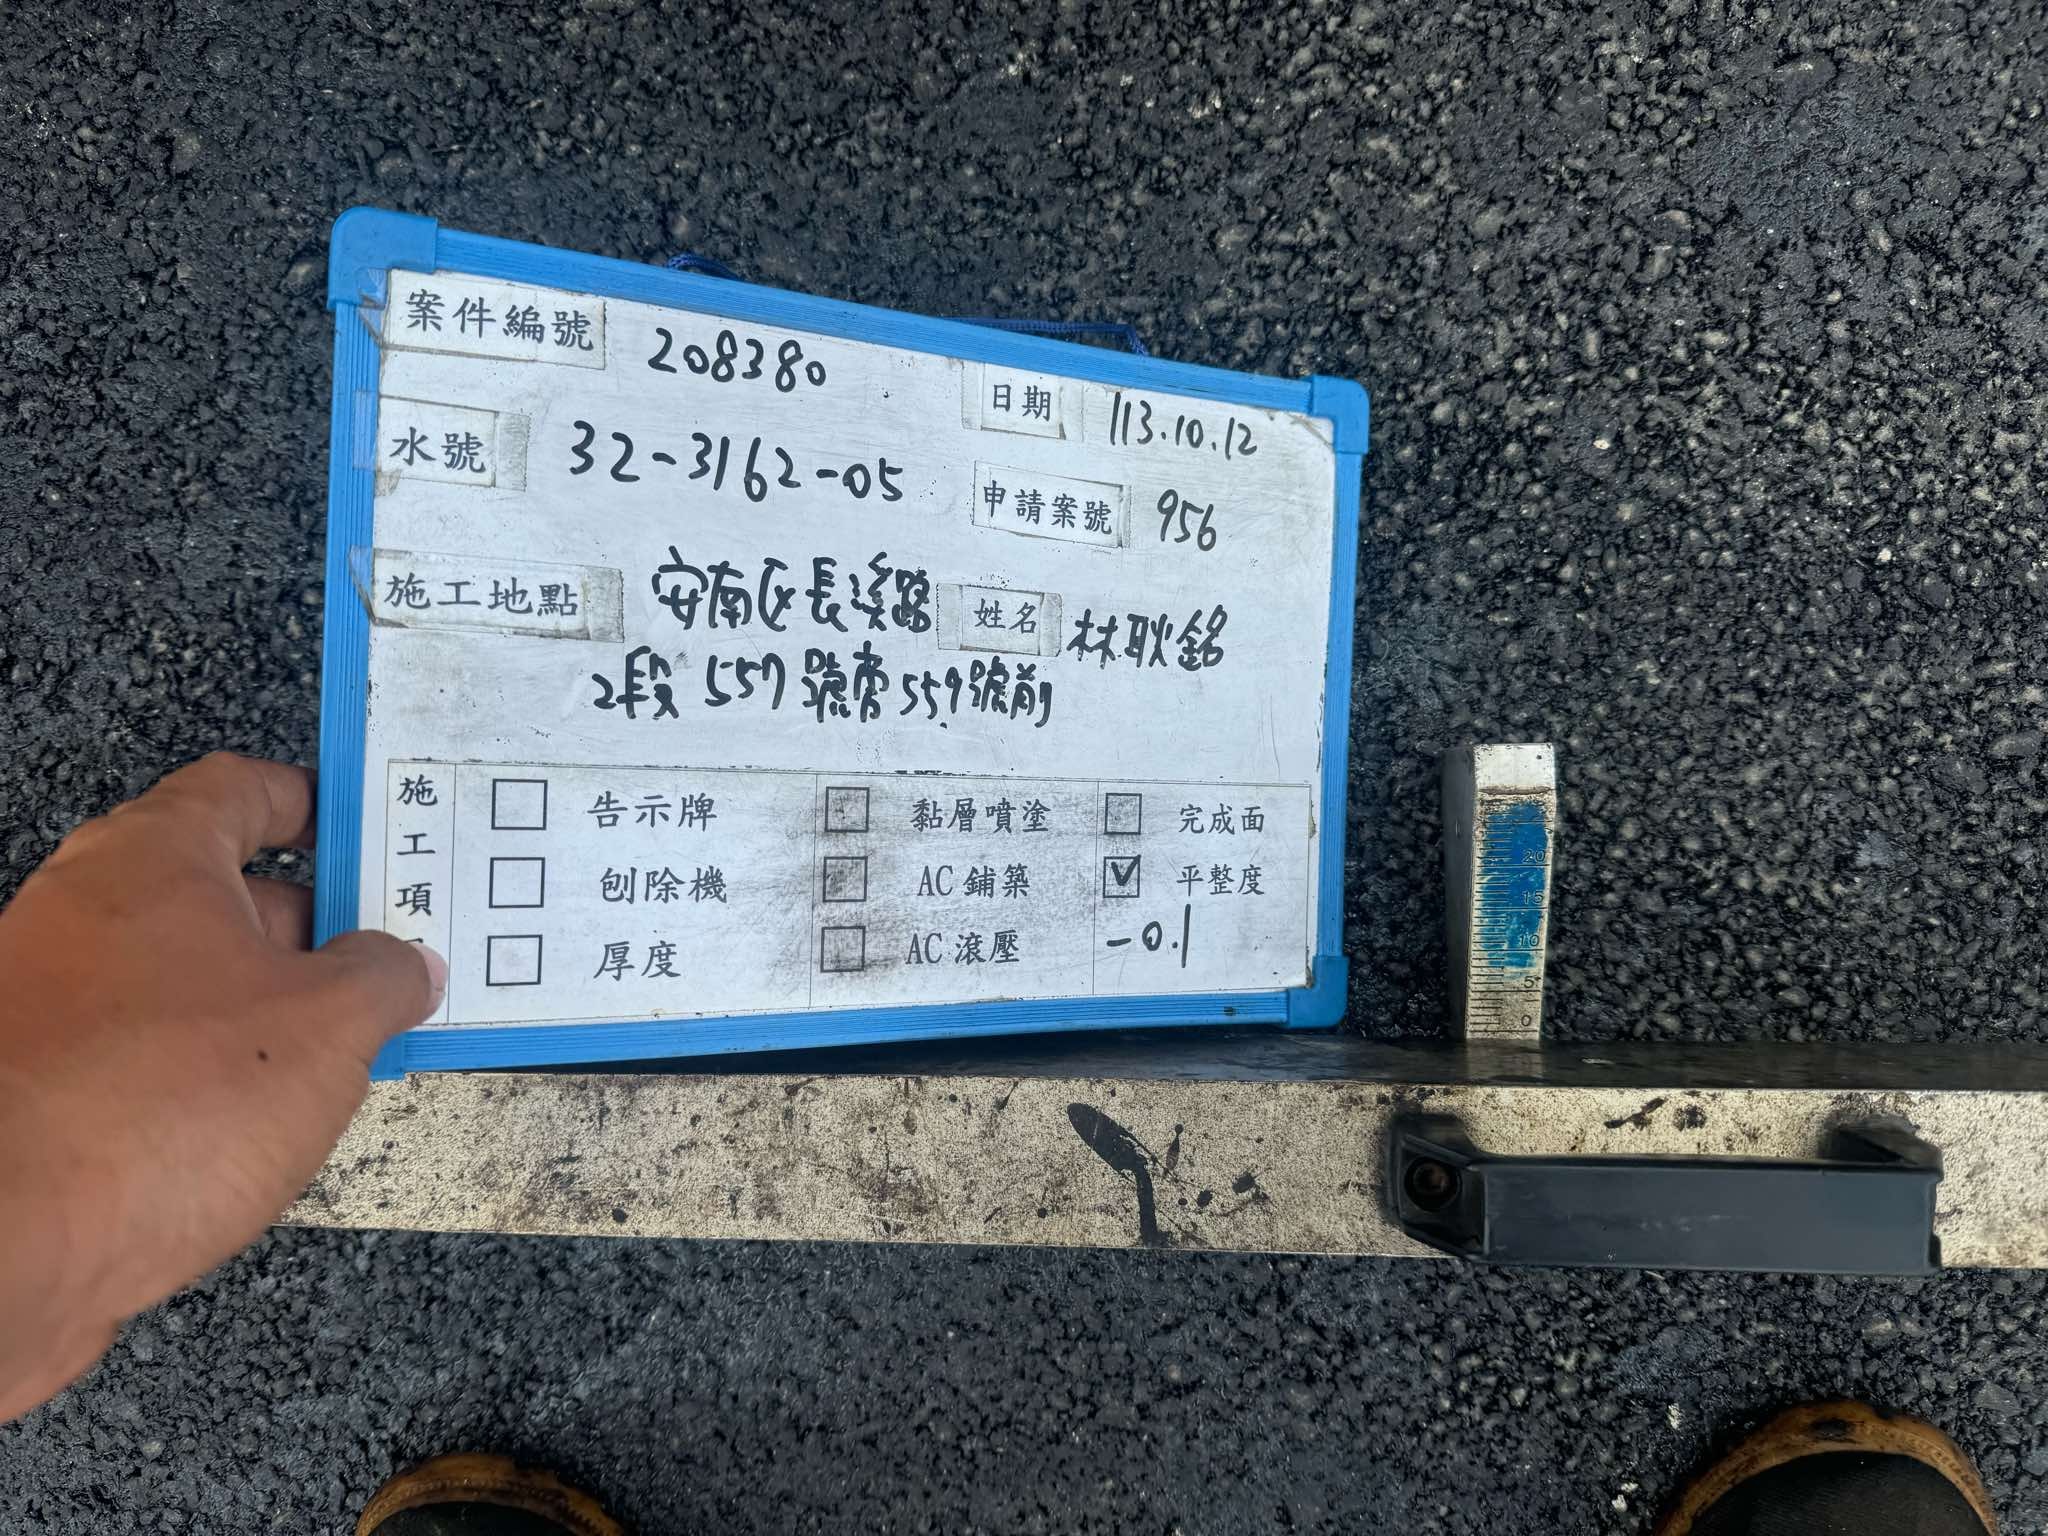 案件編號 208380
日期 113.10.12
水號 32-3162-05
申請案號 956
施工地點 安南区長溪路
姓名 林耿銘
2段 557號旁559號前
施工項
告示牌
黏層噴塗
完成面
刨除機
AC 鋪築
V 平整度
厚度
AC 滾壓
-0.1
20
15
10
5
0